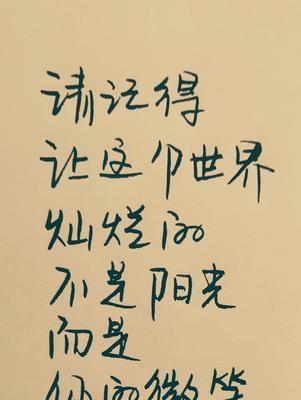 请记得
让这个世界
灿烂的
不是阳光
而是
你的微笑